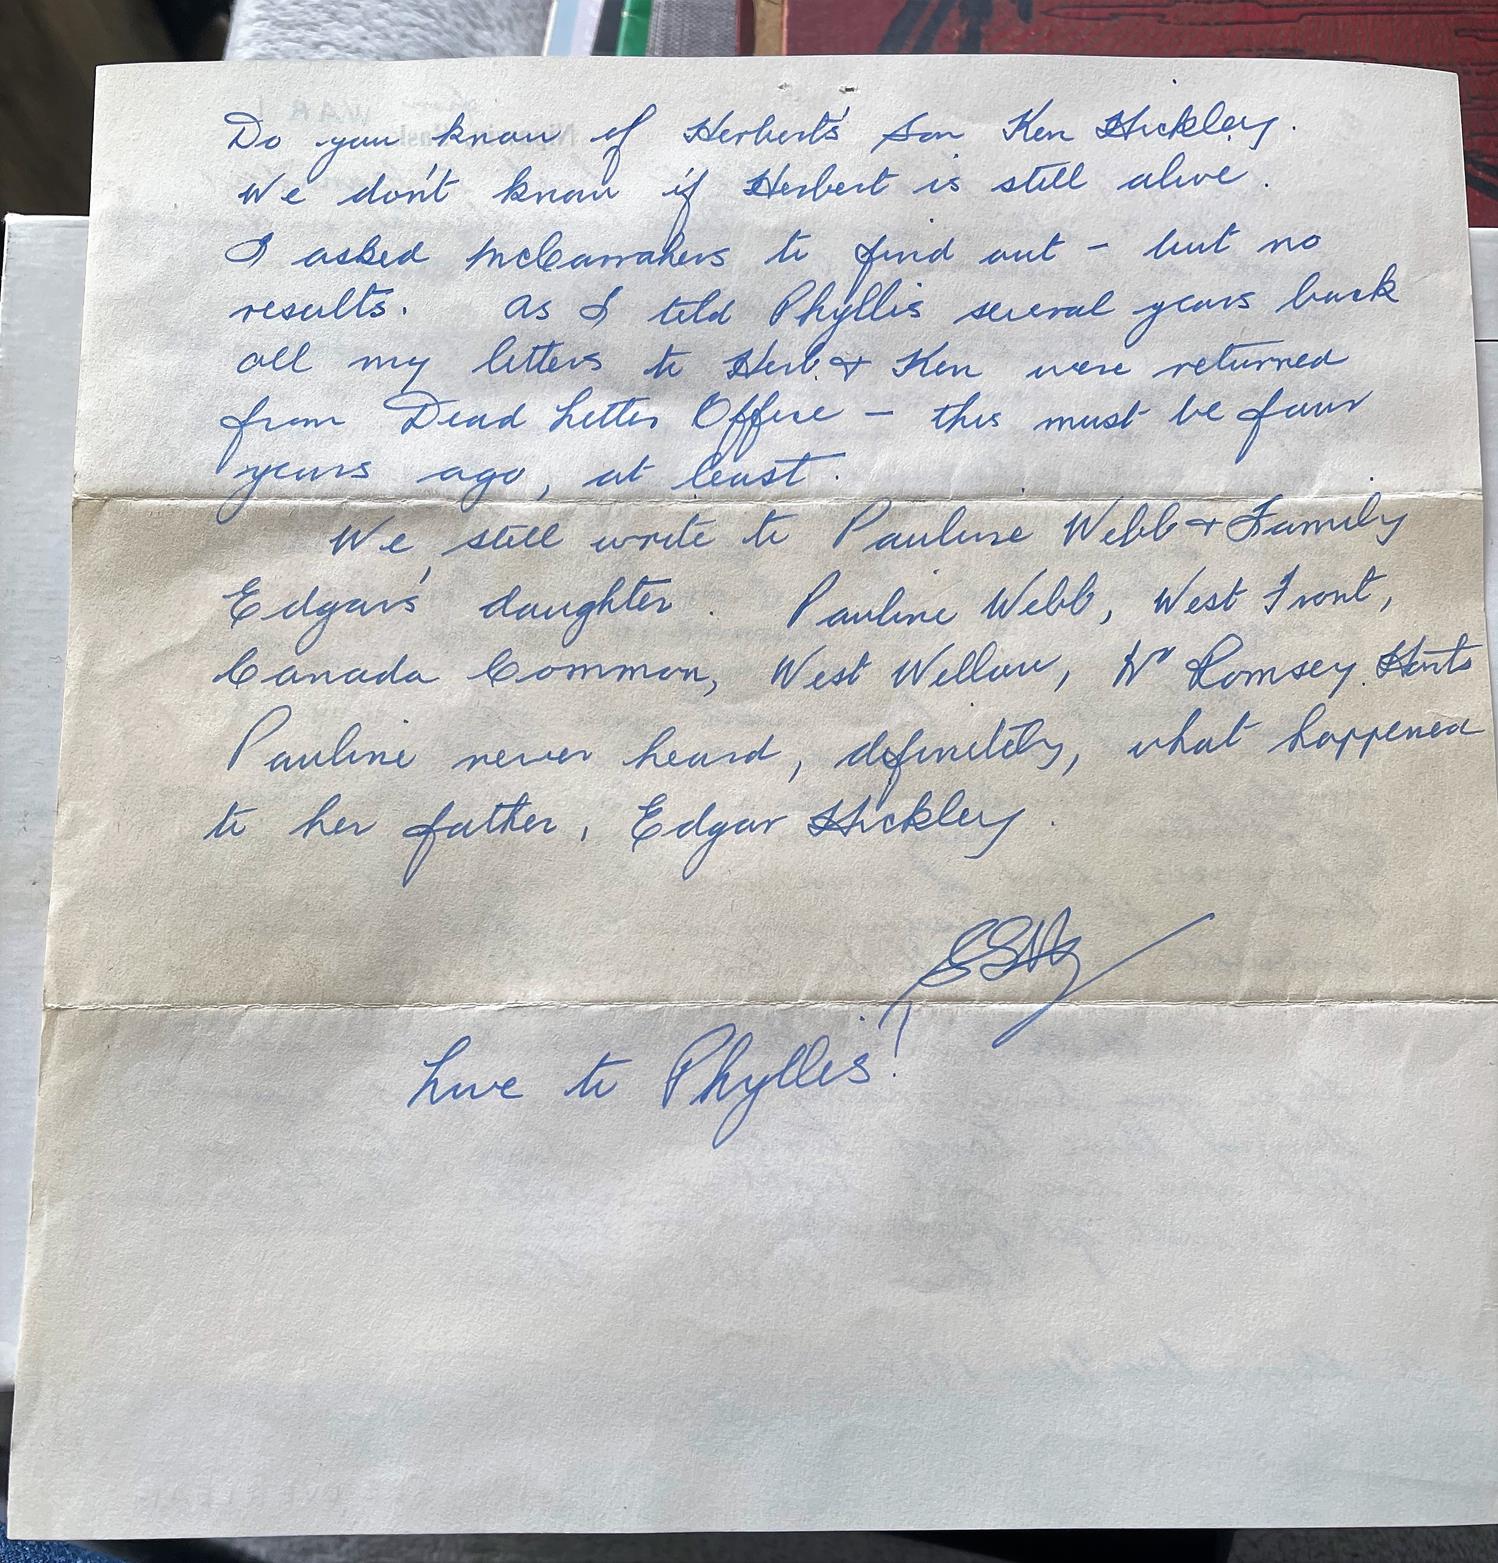 Do you know of Herbert's son Ken Hickley.
We don't know if Herbert is still alive.
I asked to find out - but no
results. As I told Phyllis several years back
all my letters to Herb. & Ken were returned
from Dead Letter Office - this must be four
years ago, at least.
We still write to Pauline Webb & Family
Edgar's daughter. Pauline Webb, West Front,
Canada Common, West Wellow, Nr Romsey. Hants
Pauline never heard, definitely, what happened
to her father, Edgar Hickley.
Love to Phyllis!